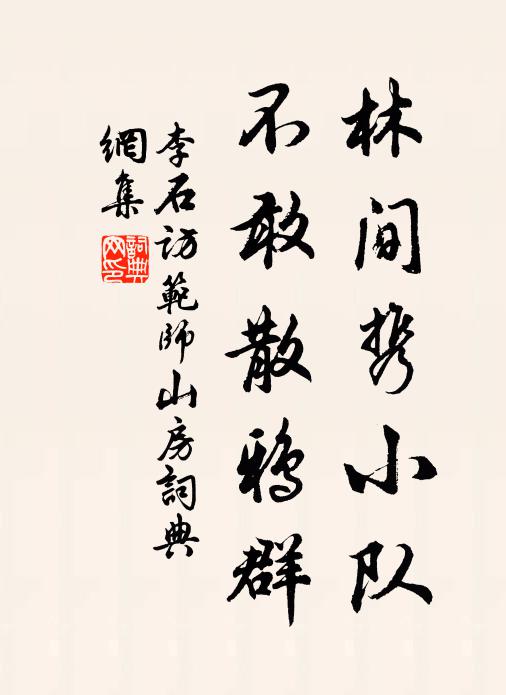 林间携小队
不敢散鸦群
李石访範師山房詞典
網集
詞典
网印